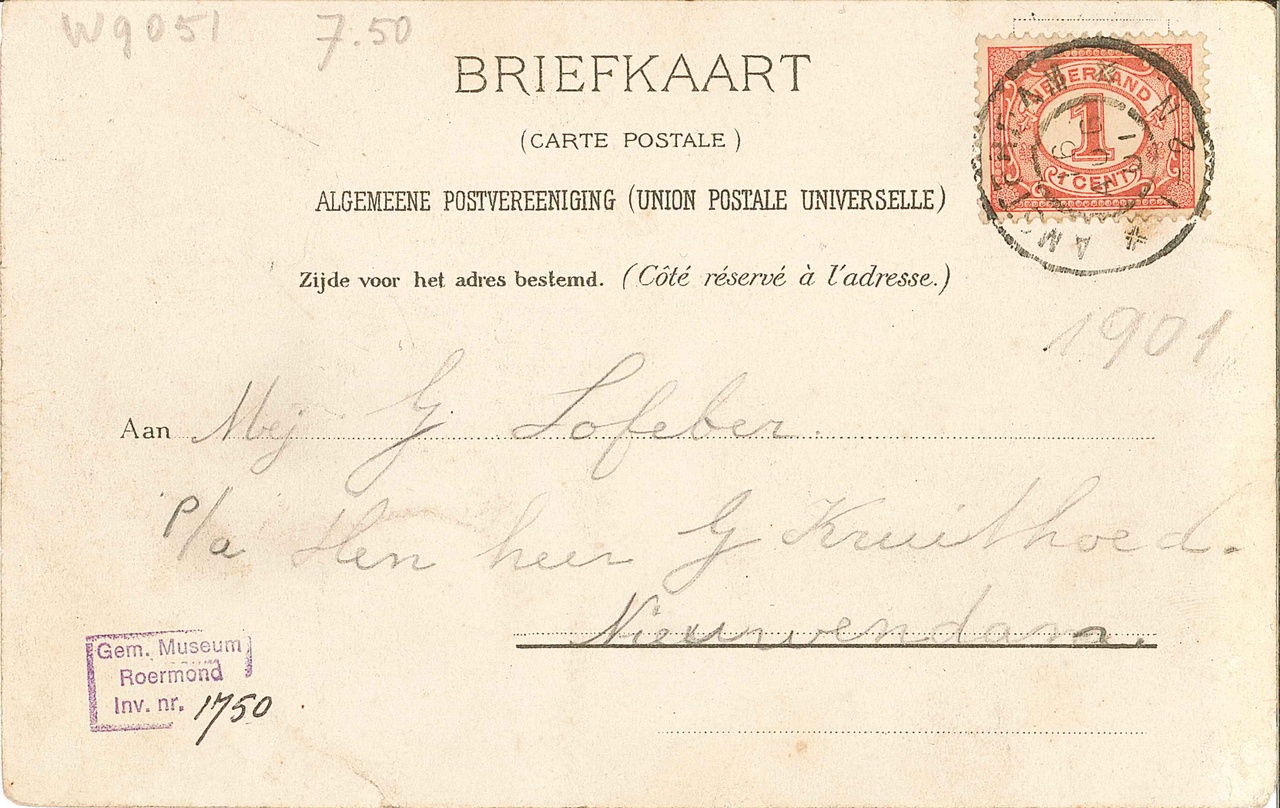 W9051 7.50
BRIEFKAART
(CARTE POSTALE)
ALGEMEENE POSTVEREENIGING (UNION POSTALE UNIVERSELLE)
Zijde voor het adres bestemd. (Côté réservé à l'adresse.)
NEDERLAND
1
1 CENT
AMSTERDAM
1901
Aan Mej G Lofeber.
p/a Den heer G Kruithoed.
Nieuwendam.
Gem. Museum
Roermond
Inv. nr. 1750